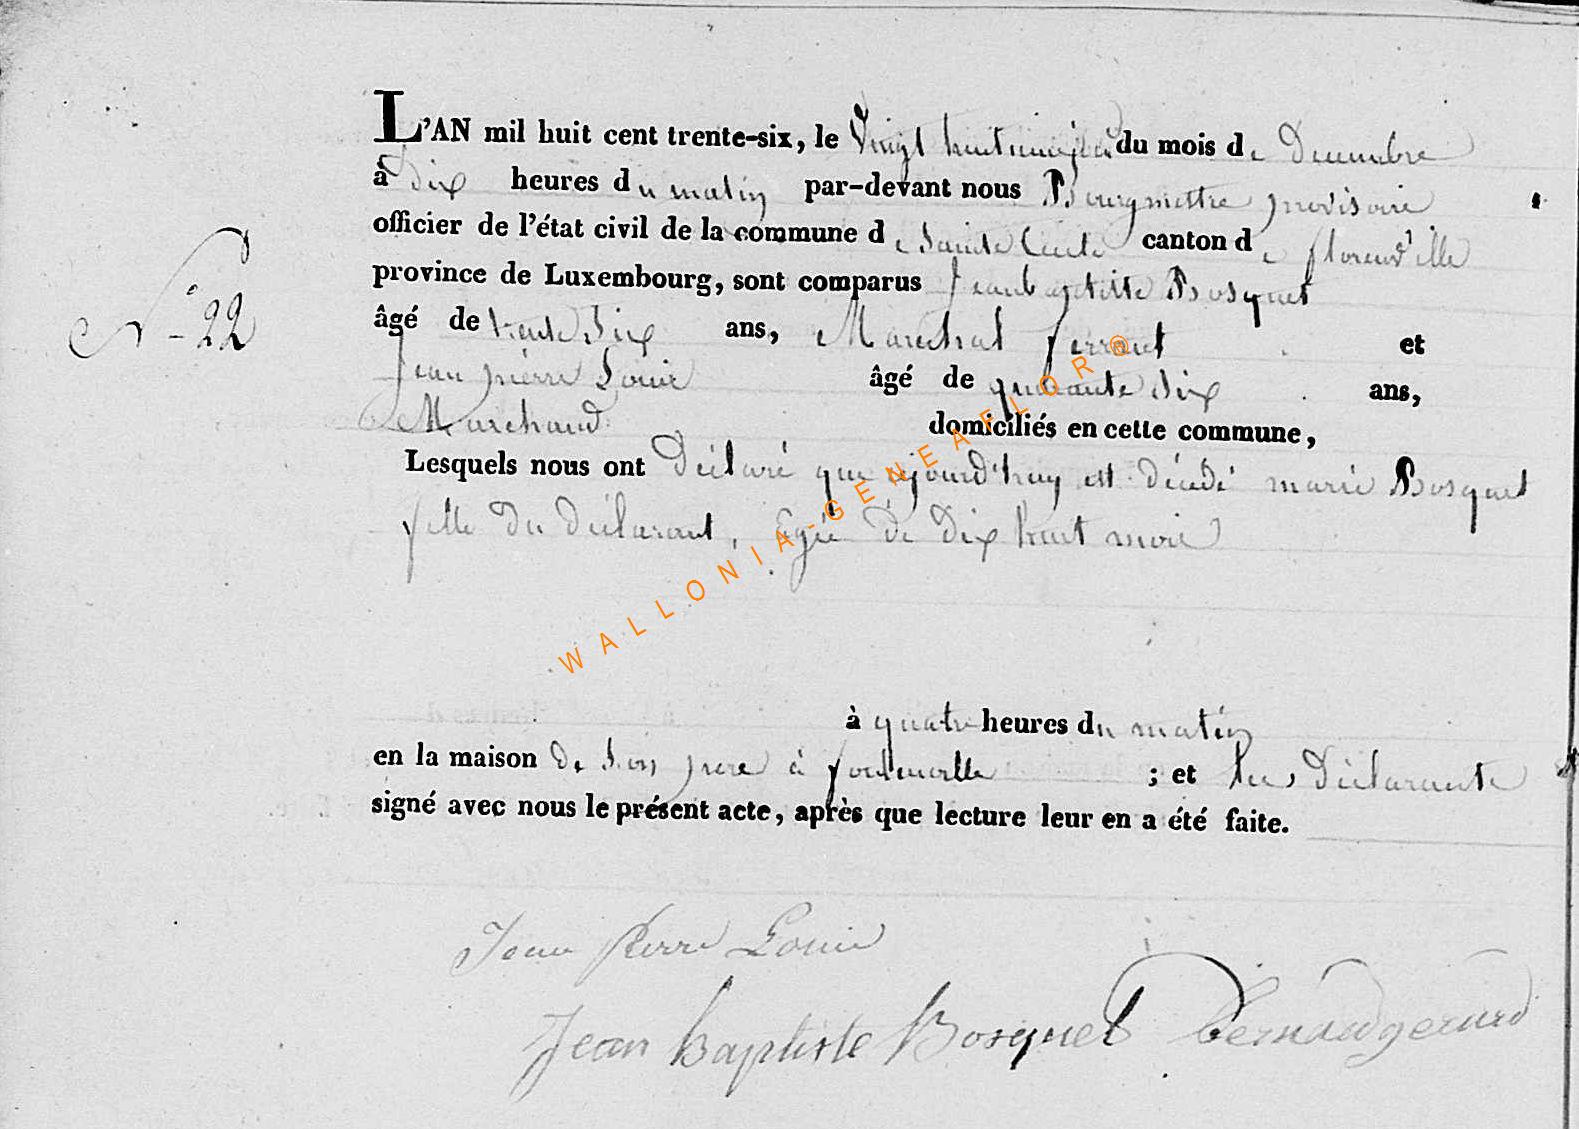 L'AN mil huit cent trente-six, le Vingt huitieme jour du mois de Decembre
à dix heures du matin par-devant nous Bourgmettre provisoire
officier de l'état civil de la commune de Sainte Cecile canton de florenville
N° 22
province de Luxembourg, sont comparus Jean baptiste Bosquet
âgé de trente Six ans, Marechal ferrant et
Jean pierre Louis âgé de quarante Six ans,
Marchand domiciliés en cette commune,
Lesquels nous ont Déclaré que ajourd'huy est décédé marie Bosquet
fille du déclarant, agée de dix huit mois
à quatre heures du matin
en la maison de son pere à ; et les Déclarants
signé avec nous le présent acte, après que lecture leur en a été faite.
Jean Pierre Louis
Jean Baptiste Bosquet
WALLONIA-GENEAFLOR®